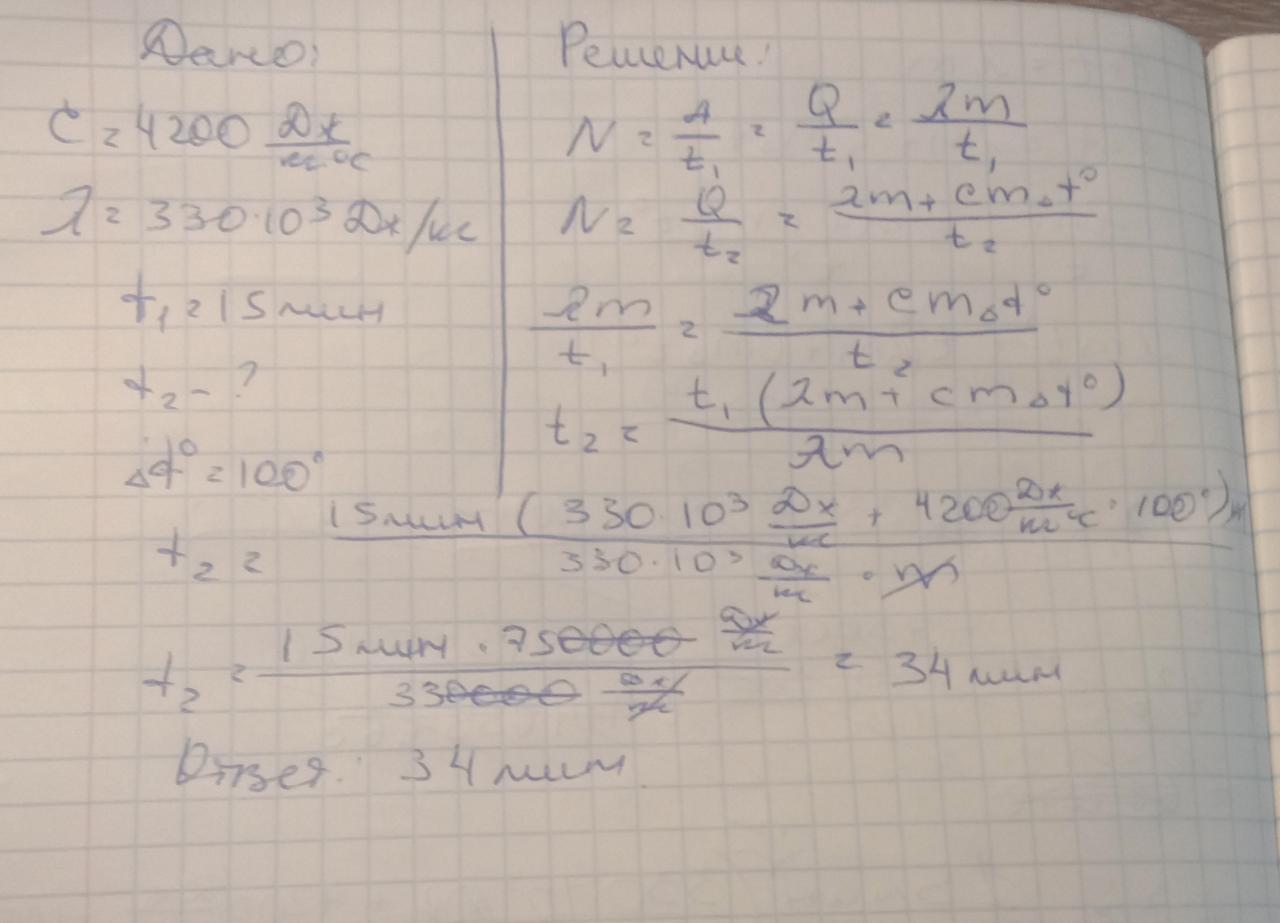 Дано:
c = 4200 Дж/кг·°C
λ = 330·10³ Дж/кг
t₁ = 15 мин
t₂ - ?
Δt° = 100°
Решение:
N = A/t₁ = Q/t₁ = λm/t₁
N = Q/t₂ = (λm + cmΔt°)/t₂
λm/t₁ = (λm + cmΔt°)/t₂
t₂ = t₁(λm + cmΔt°)/λm
t₂ = 15 мин (330·10³ Дж/кг + 4200 Дж/кг°C · 100°)m / 330·10³ Дж/кг · m
t₂ = 15 мин · 750000 Дж/кг / 330000 Дж/кг = 34 мин
Ответ: 34 мин